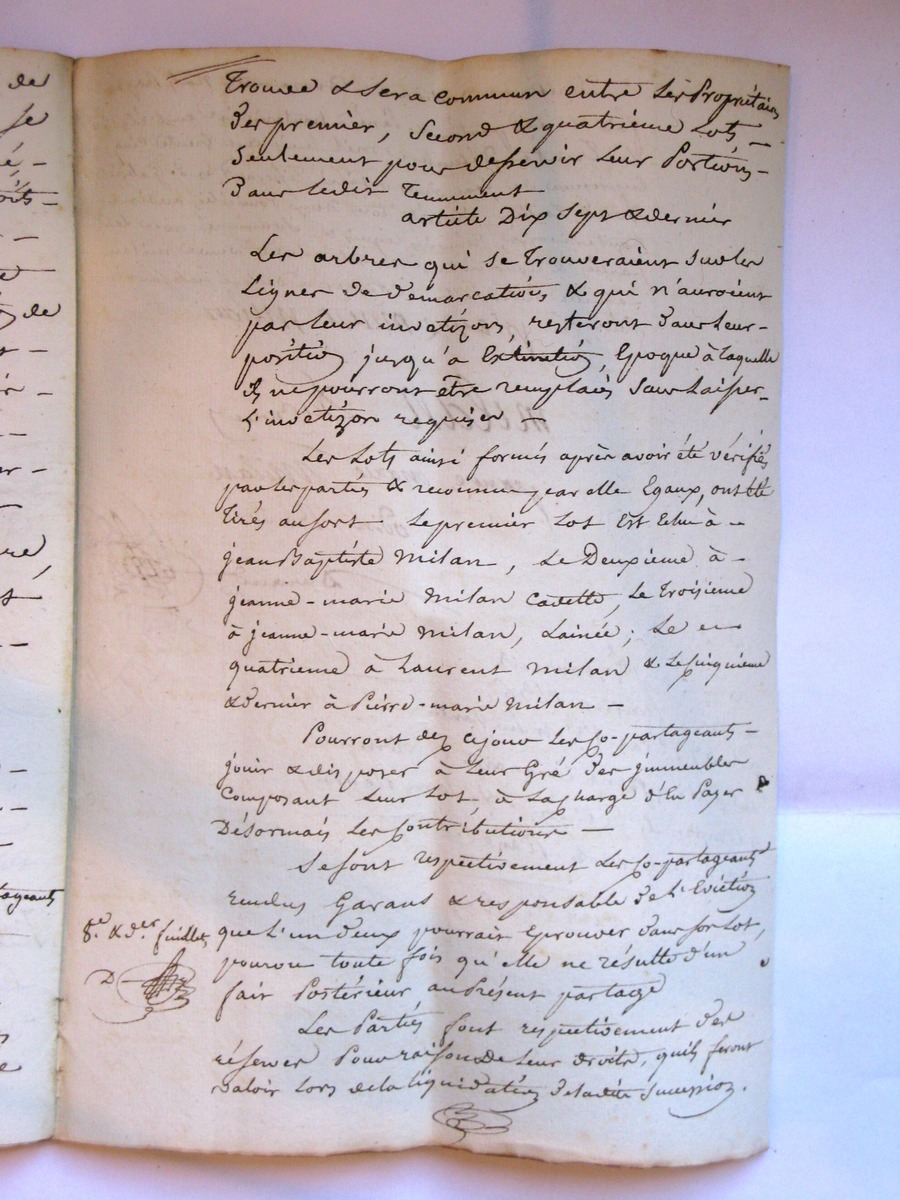 de
se
é, -
oits -
-
e
de
t -
r -
-
er -
-
re
,
t -
-
-
-
tageants
-
e
trouve & sera commun entre les Propriétaires
des premier, second & quatrieme Lots -
Seulement pour desservir leur Portions -
dans ledit Temmment
article Dix sept & dernier
Les arbres qui se trouveraient sur les
Lignes de démarcations & qui n'auroient
pas leur invetizon, resteront dans leur -
position jusqu'à Extinction, Epoque à laquelle
ils ne pourront être remplacés sans laisser -
L'invetizon requise -
Les Lots ainsi formés après avoir été vérifiés
par les parties & reconnu par elle Egaux, ont été
tirés au sort le premier Lot est Echu à -
jean Baptiste Milan, Le Deuxieme à -
jeanne-marie Milan Cadette, Le troisieme
à jeanne-marie Milan, Lainée; Le -
quatrieme à Laurent Milan & Le cinquieme
& dernier à Pierre-marie Milan -
Pourront dez cejour Les Co-partageants -
jouir & disposer à leur Gré des jmmeubles
Composant leur Lot, à La charge d'en Payer
Désormais Les Contributions -
Se sont respectivement Les Co-partageants
rendus Garans & responsable de L'Eviction
que L'un deux pourrait Eprouver dans son Lot,
pourvu toute fois qu'elle ne résulte d'un
fait Postérieur au Présent partage
Les Parties font respectivement des
réserves Pour raison de leur droits, quils feront
valoir Lors de la Liquidation de ladite succession.
8.e & d.er fuillet
D